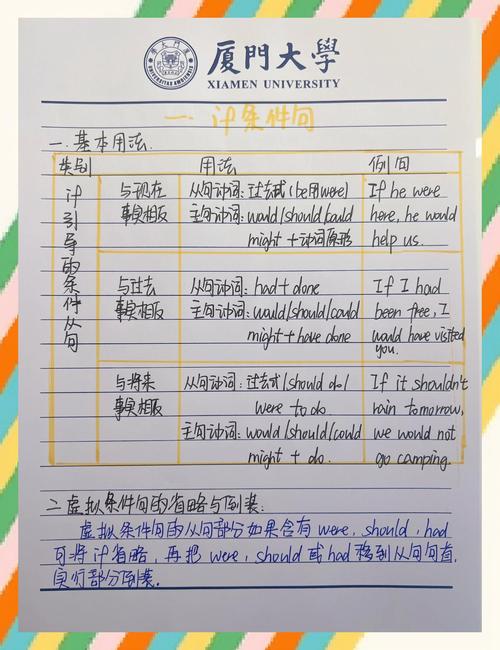 厦门大学
XIAMEN UNIVERSITY
一. if条件句
一. 基本用法.
类别 用法 例句
if引导的条件从句
与现在事实相反
从句动词: 过去式(be用were)
主句动词: would/should/could
might + 动词原形
If he were
here, he would
help us.
与过去事实相反
从句动词: had + done
主句动词: would/should/could
might + have done
If I had
been free, I
would have visited
you.
与将来事实相反
从句动词: 过去式/should do/
were to do
主句动词: would/should/could
might + do.
If it shouldn't
rain tomorrow,
we would not
go camping.
二. 虚拟条件句的省略与倒装:
虚拟条件句的从句部分如果含有 were, should, had
可将if省略, 再把 were, should 或 had 移到从句句首,
实行部分倒装.